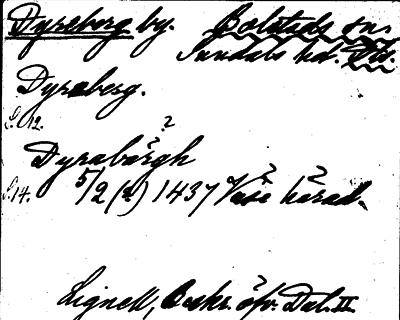 Dyrsberg by. Bolstads sn.
Sundals hd. Dls.
Dyrsberg.
S. 12.
?
Dyrabärgh
S. 14. 5/2 (a) 1437 Vase härad.
Lignell, Beskr. öfv. Dal. II.